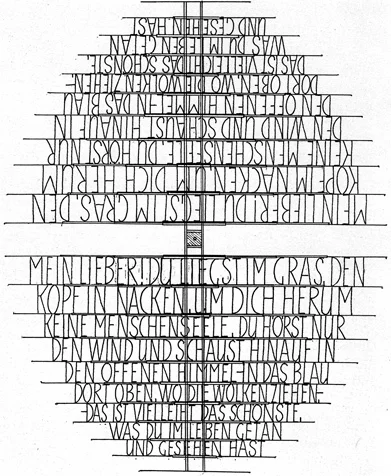 UND GESEHEN HAST
WAS DU IM LEBEN GETAN
DAS IST VIELLEICHT DAS SCHÖNSTE
DORT OBEN, WO DIE WOLKEN ZIEHEN
DEN OFFENEN HIMMEL-IN DAS BLAU
DEN WIND UND SCHAUST HINAUF IN
KEINE MENSCHENSEELE, DU HÖRST NUR
KOPF IM NACKEN, UM DICH HERUM
MEIN LIEBER! DU LIEGST IM GRAS, DEN
MEIN LIEBER! DU LIEGST IM GRAS, DEN
KOPF IN NACKEN, UM DICH HERUM
KEINE MENSCHENSEELE, DU HÖRST NUR
DEN WIND UND SCHAUST HINAUF IN
DEN OFFENEN HIMMEL-IN DAS BLAU
DORT OBEN, WO DIE WOLKEN ZIEHEN-
DAS IST VIELLEIHT DAS SCHÖNSTE,
WAS DU IM LEBEN GETAN
UND GESEHEN HAST